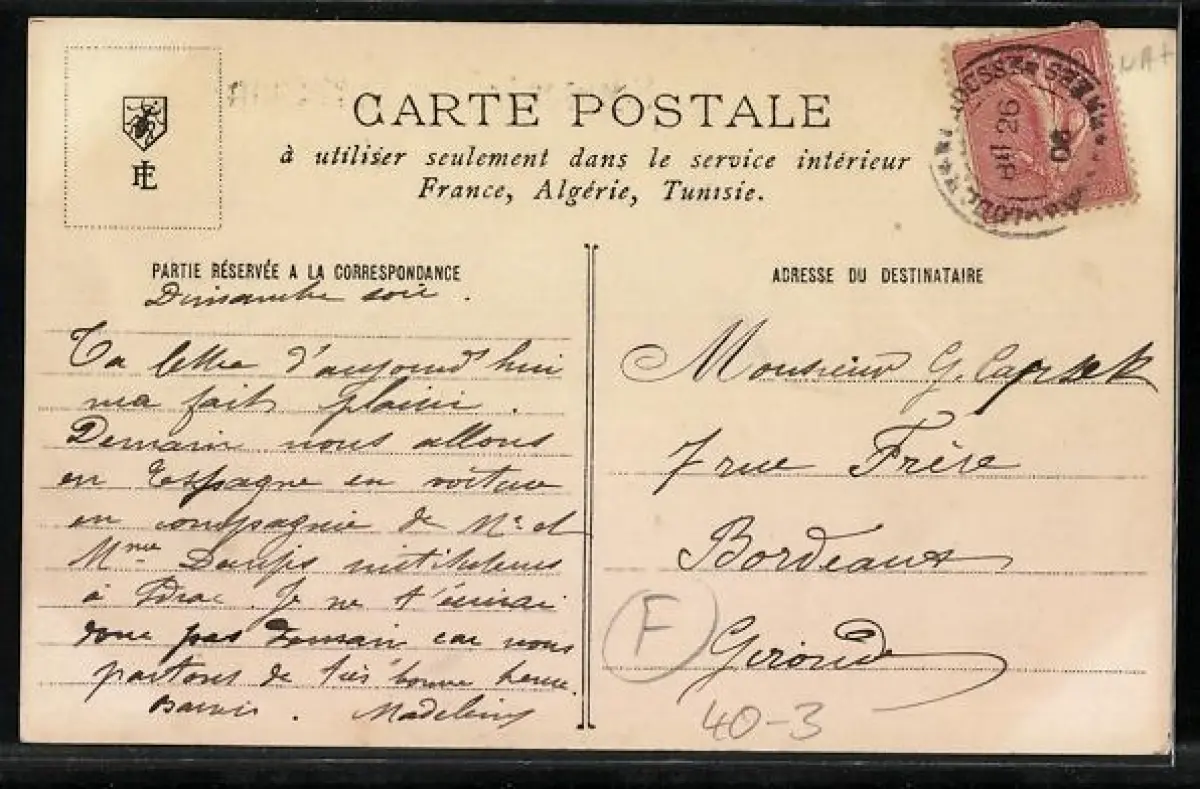 CARTE POSTALE
à utiliser seulement dans le service intérieur
France, Algérie, Tunisie.
PARTIE RÉSERVÉE A LA CORRESPONDANCE
Dimanche soir.
Ta lettre d'aujourd'hui
ma fait plaisir.
Demain nous allons
en Espagne en voiture
en compagnie de Mr et
Mme instituteurs
à Je ne t'écrirai
donc pas demain car nous
partons de très bonne heure.
Madeleine
ADRESSE DU DESTINATAIRE
Monsieur G.
7 rue Frère
Bordeaux
Gironde
F
40-3
26
06